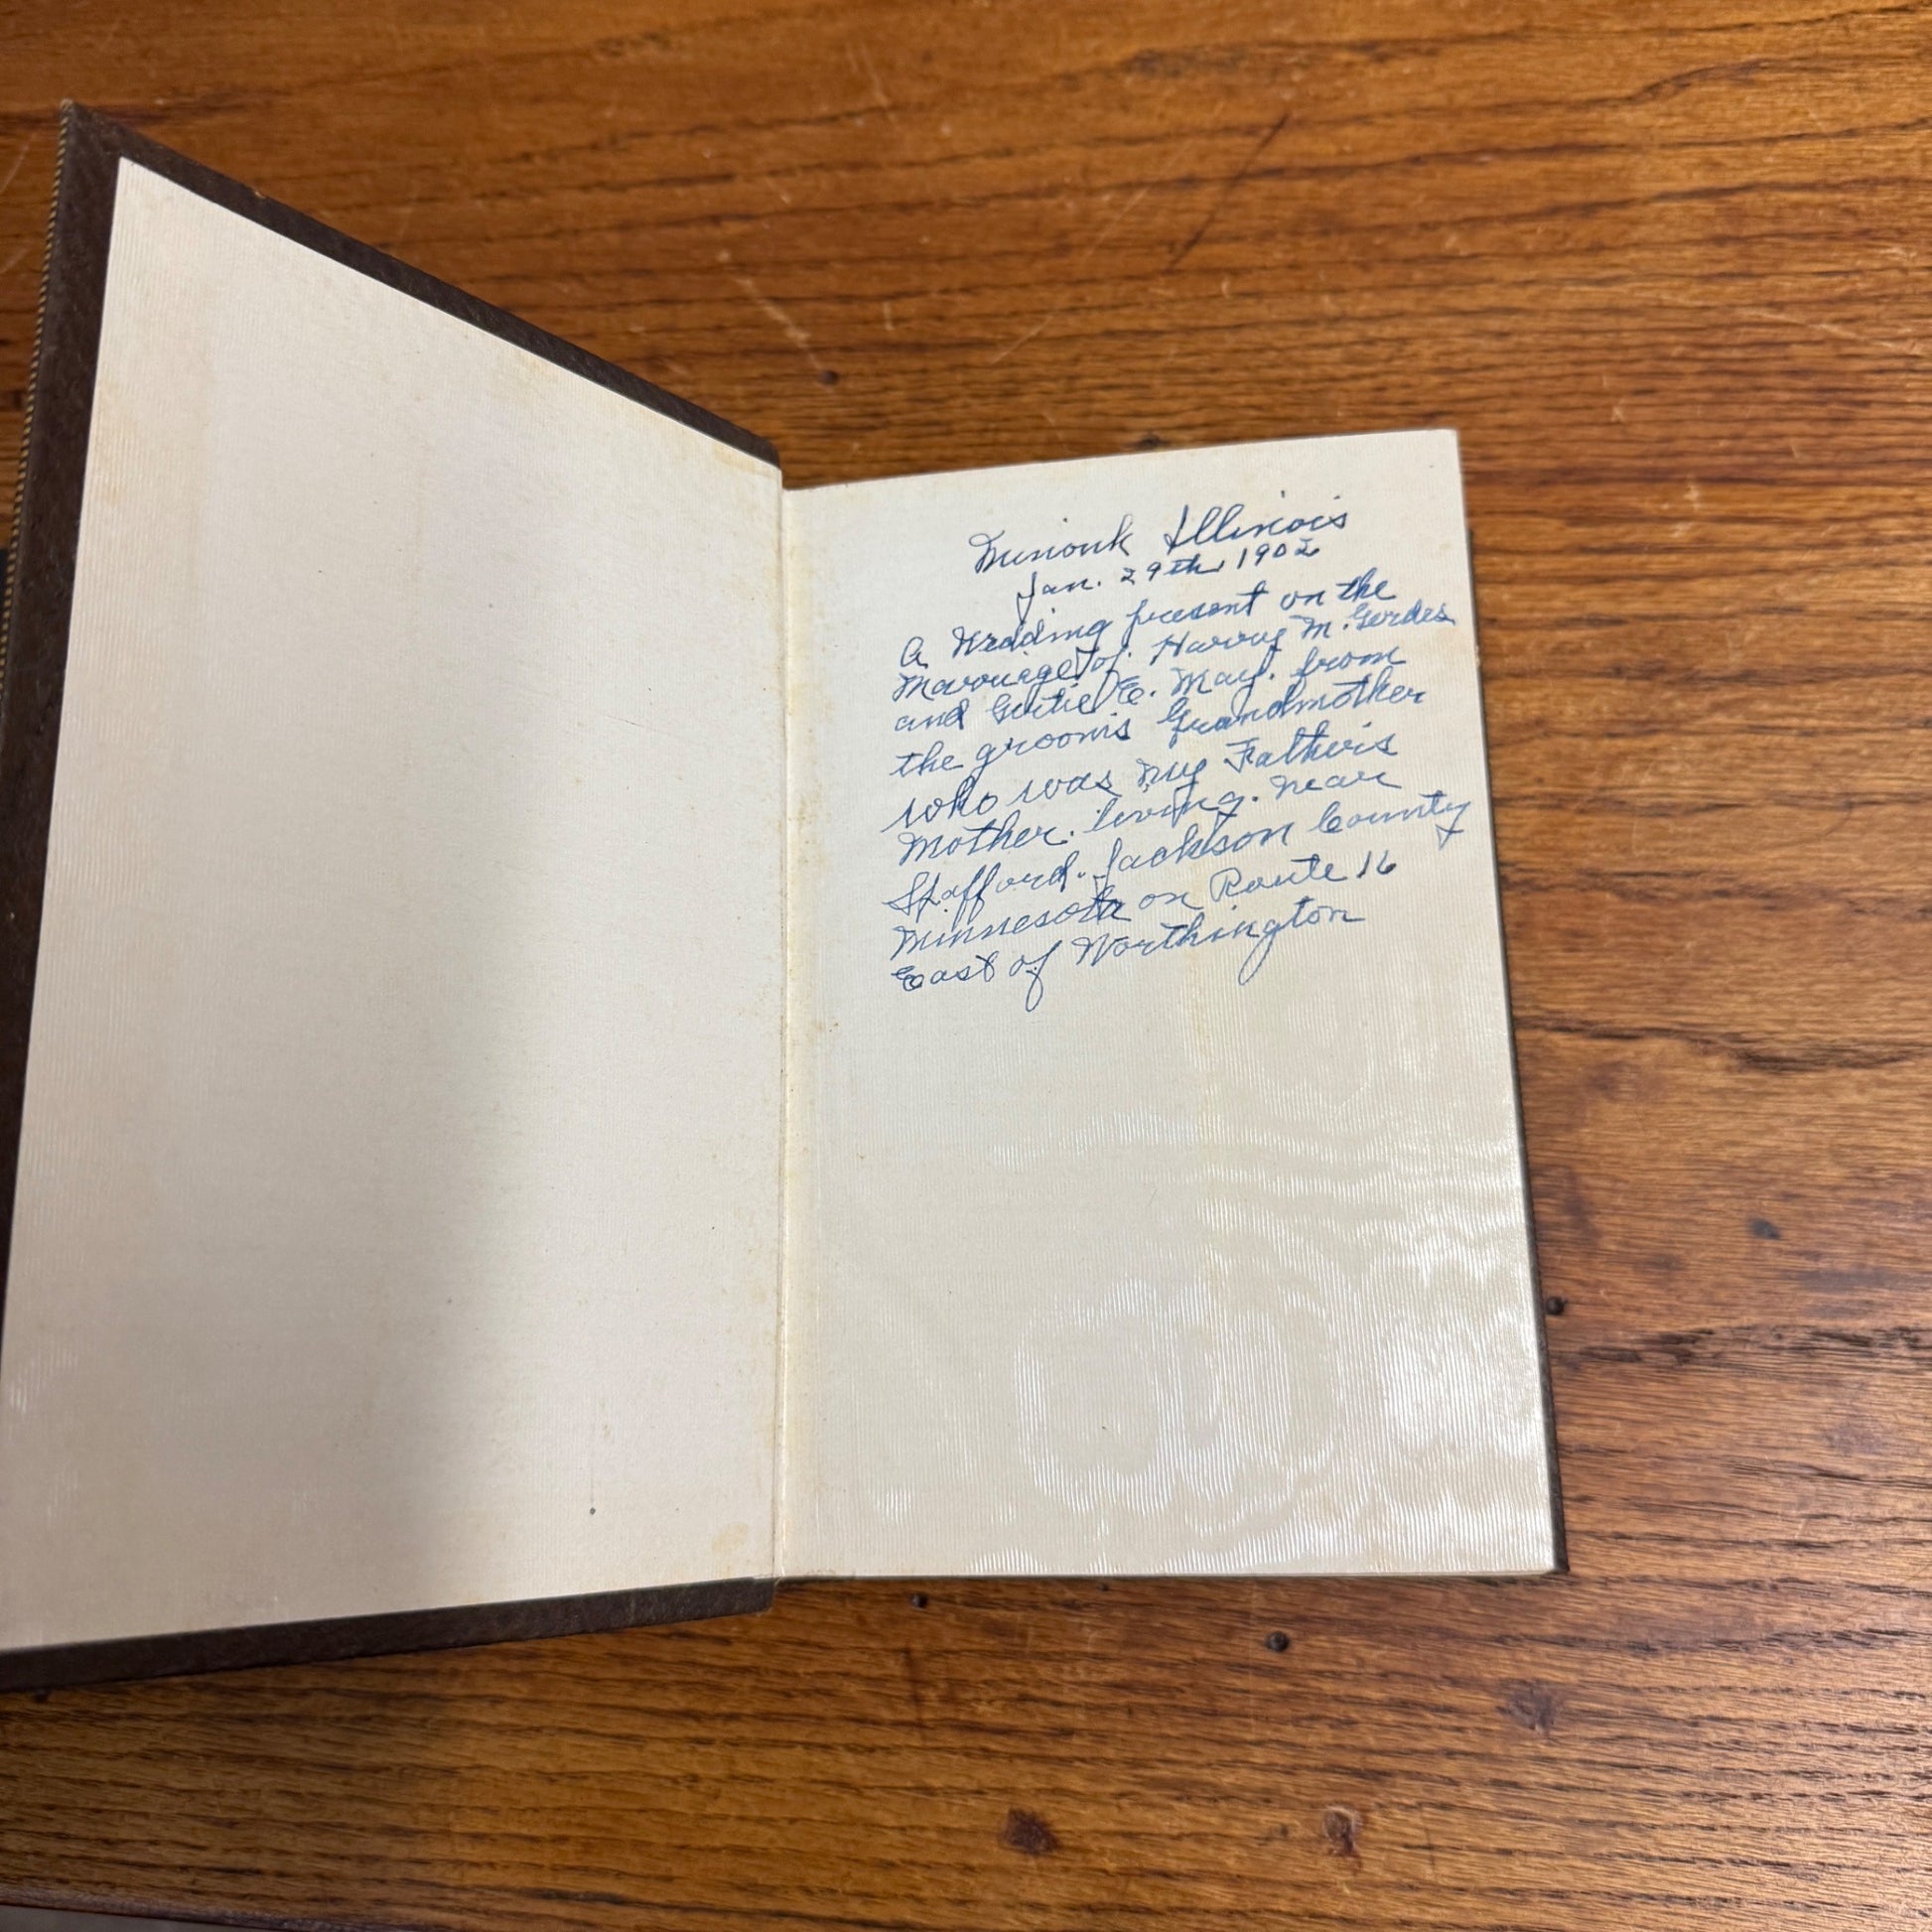 Minonk Illinois
Jan. 29th, 1902
A Wedding present on the
Marriage of. Harry M. Gerdes
and Gertie E. May. from
the groom's Grandmother
who was my Father's
Mother. living. near
Spafford. Jackson County
Minnesota on Route 16
East of Worthington